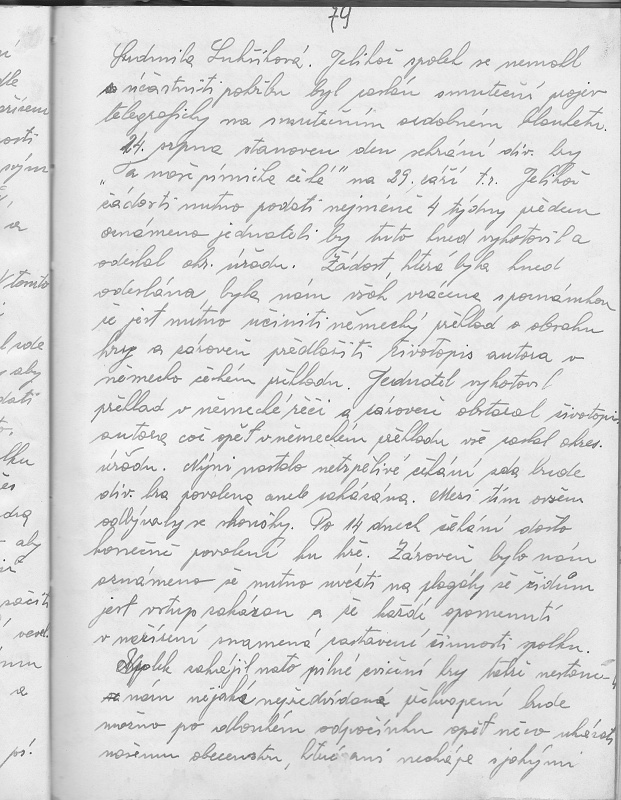 79
Ludmila Lukšíková. Jelikož spolek se nemohl
súčastniti pohřbu byl zaslán smuteční projev
telegraficky na smutečním ozdobném blanketu.
24. srpna stanoven den sehrání div. hry
"Ta naše písnička česká" na 29. září t.r. Jelikož
žádosti nutno podati nejméně 4 týdny předem
oznámeno jednateli by tuto hned vyhotovil a
odeslal okr. úřadu. Žádost, která byla hned
odeslána, byla nám však vrácena s poznámkou
že jest nutno učiniti německý překlad o obsahu
hry a zároveň předložiti životopis autora v
německo českém překladu. Jednatel vyhotovil
překlad v německé řeči a zároveň obstaral životopis
autora což opět v německém překladu vše zaslal okres.
úřadu. Nyní nastalo netrpělivé čekání zda bude
div. hra povolena aneb zakázána. Mezi tím ovšem
odbývaly se zkoušky. Po 14 dnech čekání došlo
konečně povolení ku hře. Zároveň bylo nám
oznámeno že nutno uvésti na plagáty že židům
jest vstup zakázán a že každé opomenutí
v nařízení znamená zastavení činnosti spolku.
Spolek zahájil nato pilné cvičení hry takže nestane-li
se nám nějaké nepředvídané překvapení bude
možno po dlouhém odpočinku opět něco ukázati
našemu obecenstvu, které ani nechápe s jakými